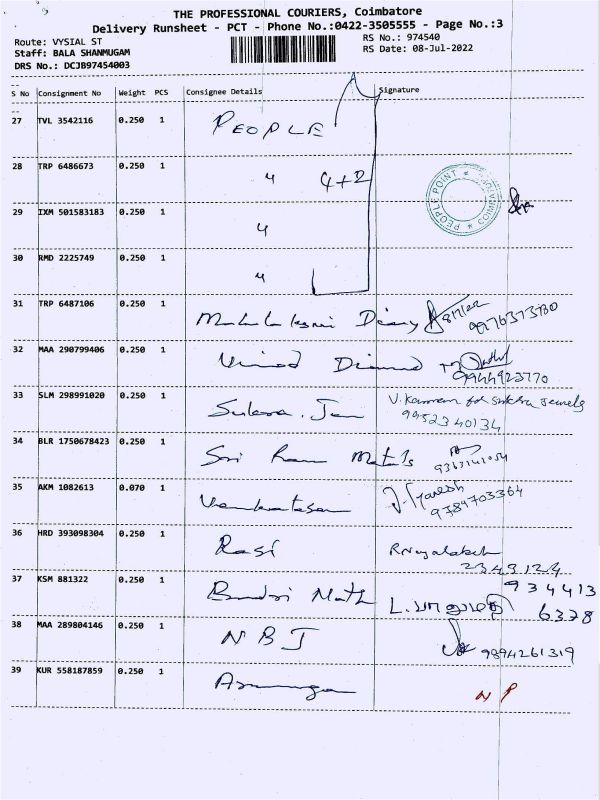 THE PROFESSIONAL COURIERS, Coimbatore
Delivery Runsheet - PCT - Phone No.:0422-3505555 - Page No.:3
Route: VYSIAL ST
RS No.: 974540
Staff: BALA SHANMUGAM
RS Date: 08-Jul-2022
DRS No.: DCJB97454003
S No Consignment No Weight PCS Consignee Details Signature
27 TVL 3542116 0.250 1 PEOPLE
28 TRP 6486673 0.250 1 " 4+2
PEOPLE POINT * COIMBATORE *
29 IXM 501583183 0.250 1 "
30 RMD 2225749 0.250 1 "
31 TRP 6487106 0.250 1 Mahalaksmi 9976373780
32 MAA 290799406 0.250 1 Vinod Diamond 9944923770
33 SLM 298991020 0.250 1 V. Kannan for Jewels
9952340134
34 BLR 1750678423 0.250 1 Sri Ram Metals
35 AKM 1082613 0.070 1 Venkatesan J. Ganesh
9789703364
36 HRD 393098304 0.250 1 Rasi
2343124
37 KSM 881322 0.250 1 Nath L. 934413
6378
38 MAA 289804146 0.250 1 NBJ 9894261319
39 KUR 558187859 0.250 1 NP